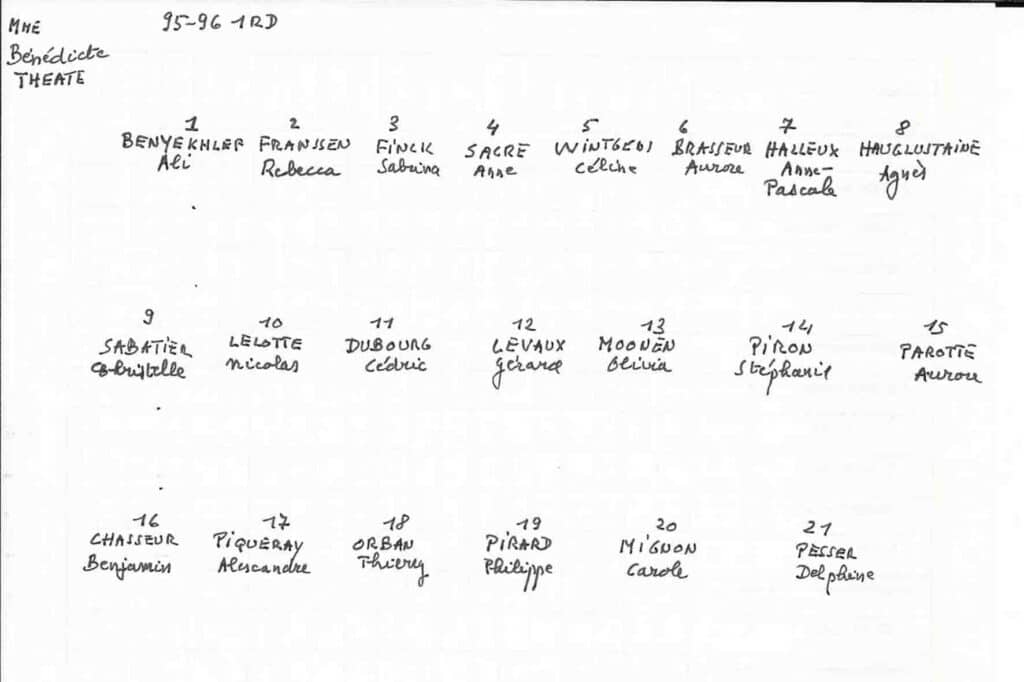 MME 95-96 1RD
Bénédicte
THEATE
1 2 3 4 5 6 7 8
BENYEKHLEF FRANSSEN FINCK SACRE BRASSEUR HALLEUX HAUGLUSTAINE
Ali Rebecca Sabrina Anne Céline Aurore Anne- Agnès
Pascale
9 10 11 12 13 14 15
SABATIER LELOTTE DUBOURG LEVAUX MOONEN PIRON PAROTTE
Christelle Nicolas Cédric Gérard Olivia Stéphanie Aurore
16 17 18 19 20 21
CHASSEUR PIQUERAY ORBAN PIRARD MIGNON PESSER
Benjamin Alexandre Thierry Philippe Carole Delphine